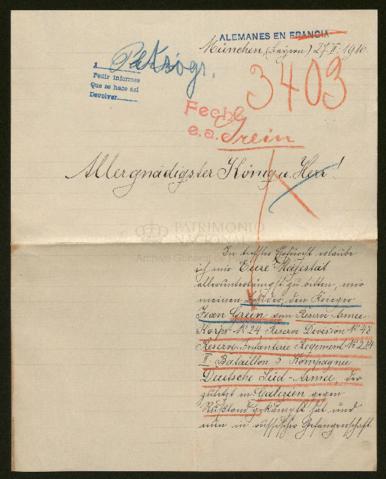 ALEMANES EN FRANCIA
München, (Bayern) 27.II. 1916.
A Petrogr.
Pedir informes
Que se hace así
Devolver
3403
Fecho
e.a. Grein
Allergnädigster König u. Herr!
PATRIMONIO
NACIONAL
In tiefster Ehrfurcht erlaube
ich mir Euere Majestät
alleruntertänigst zu bitten, mir
meinen Bruder, den Krieger
Grein vom Reserve Armee
Korps No 24 Reserve Division No 48
Reserve Infanterie Regiment No
II Bataillon 5 Kompagnie
Deutsche Süd-Armee, der
zuletzt in Galizien gegen
Rußland gekämpft hat und
nun in russischer Gefangenschaft